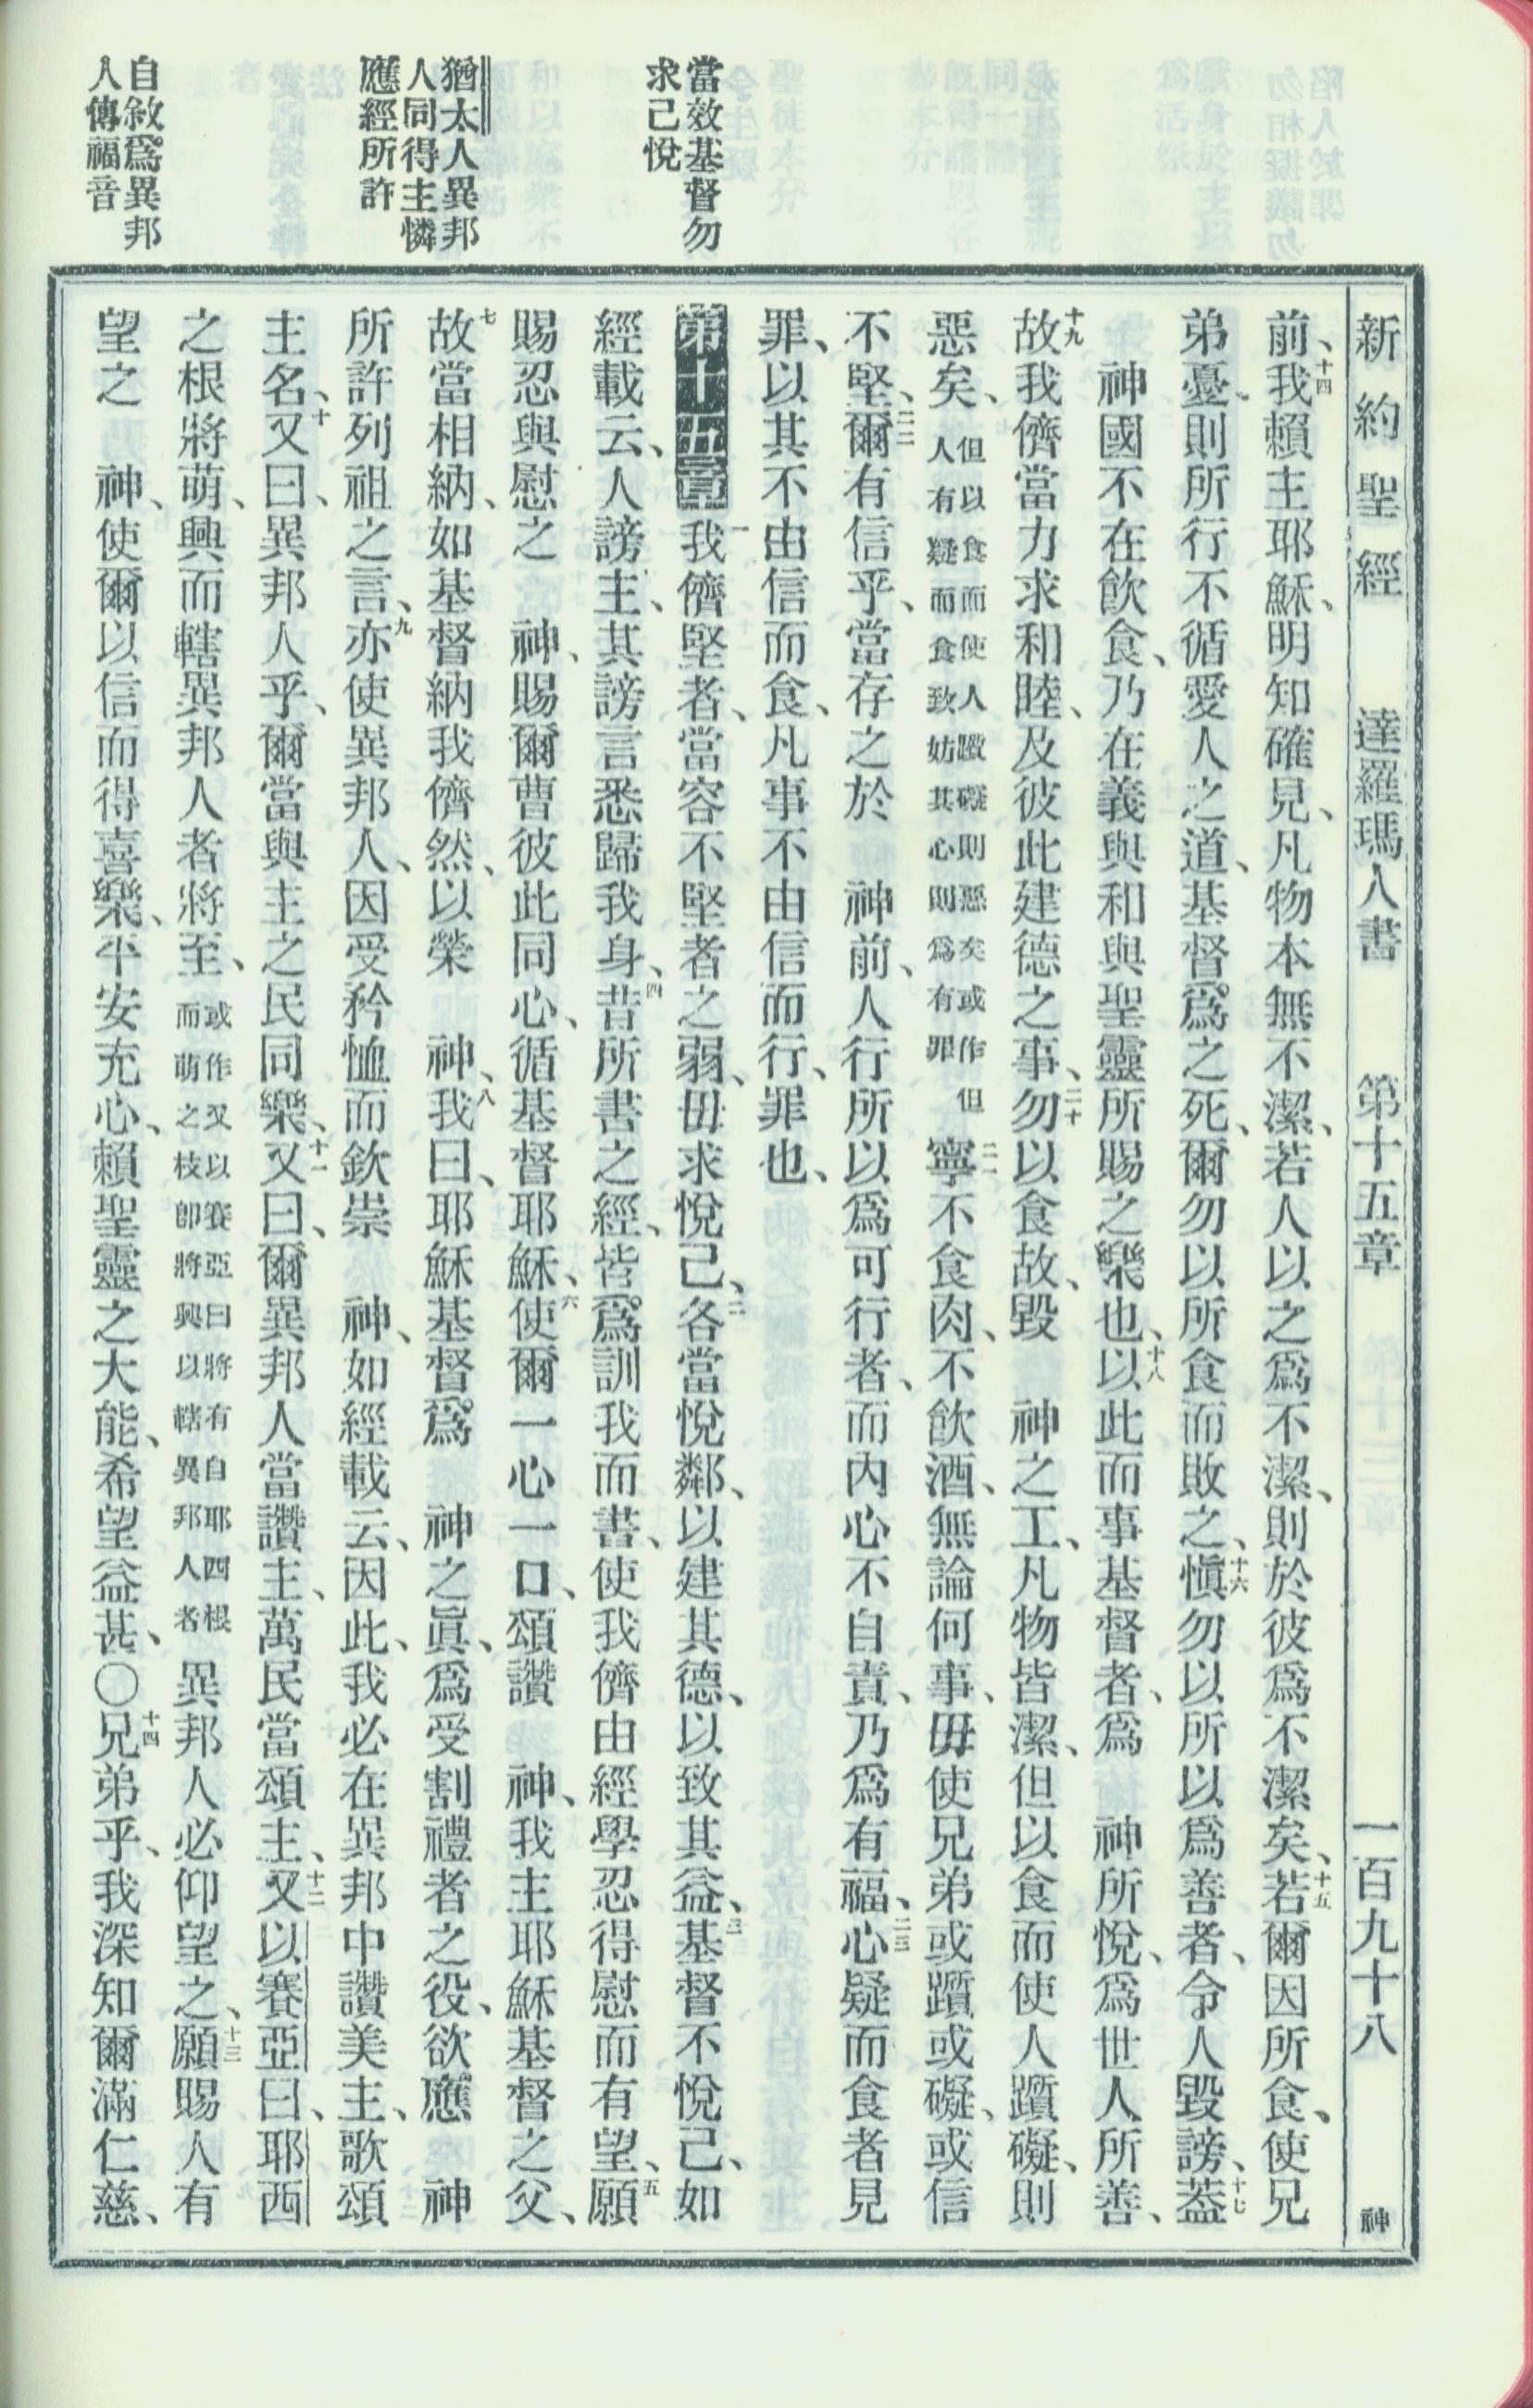 當效基督勿
求己悅
猶太人異邦
人同得主憐
應經所許
自敘爲異邦
人傳福音
新約聖經 達羅瑪人書 第十五章 一百九十八 神
前、十四我賴主耶穌、明知確見、凡物本無不潔、若人以之爲不潔、則於彼爲不潔矣、十五若爾因所食、使兄
弟憂、則所行不循愛人之道、基督爲之死、爾勿以所食而敗之、十六愼勿以所以爲善者、令人毀謗、十七蓋
神國不在飮食、乃在義與和與聖靈所賜之樂也、十八以此而事基督者、爲 神所悅、爲世人所善、
十九故我儕當力求和睦、及彼此建德之事、二十勿以食故、毀 神之工、凡物皆潔、但以食而使人躓礙、則
惡矣、但以食而使人躓礙則惡矣或作但人有疑而食致妨其心則爲有罪 二一寧不食肉、不飮酒、無論何事、毋使兄弟或躓或礙、或信
不堅、二二爾有信乎、當存之於 神前、人行所以爲可行者、而內心不自責、乃爲有福、二三心疑而食者見
罪、以其不由信而食、凡事不由信而行、罪也、
第十五章 一我儕堅者、當容不堅者之弱、毋求悅己、二各當悅鄰、以建其德、以致其益、三基督不悅己、如
經載云、人謗主、其謗言悉歸我身、四昔所書之經、皆爲訓我而書、使我儕由經學忍得慰而有望、五願
賜忍與慰之 神、賜爾曹彼此同心、循基督耶穌、六使爾一心一口、頌讚 神、我主耶穌基督之父、
七故當相納、如基督納我儕然、以榮 神、八我曰、耶穌基督爲 神之眞、爲受割禮者之役、欲應 神
所許列祖之言、九亦使異邦人、因受矜恤而欽崇 神、如經載云、因此、我必在異邦中讚美主、歌頌
主名、十又曰、異邦人乎、爾當與主之民同樂、十一又曰、爾異邦人當讚主、萬民當頌主、十二又以賽亞曰、耶西
之根將萌、興而轄異邦人者將至、或作又以賽亞曰將有自耶西根而萌之枝卽將興以轄異邦人者 異邦人必仰望之、十三願賜人有
望之 神、使爾以信而得喜樂、平安充心、賴聖靈之大能、希望益甚、〇十四兄弟乎、我深知爾滿仁慈、